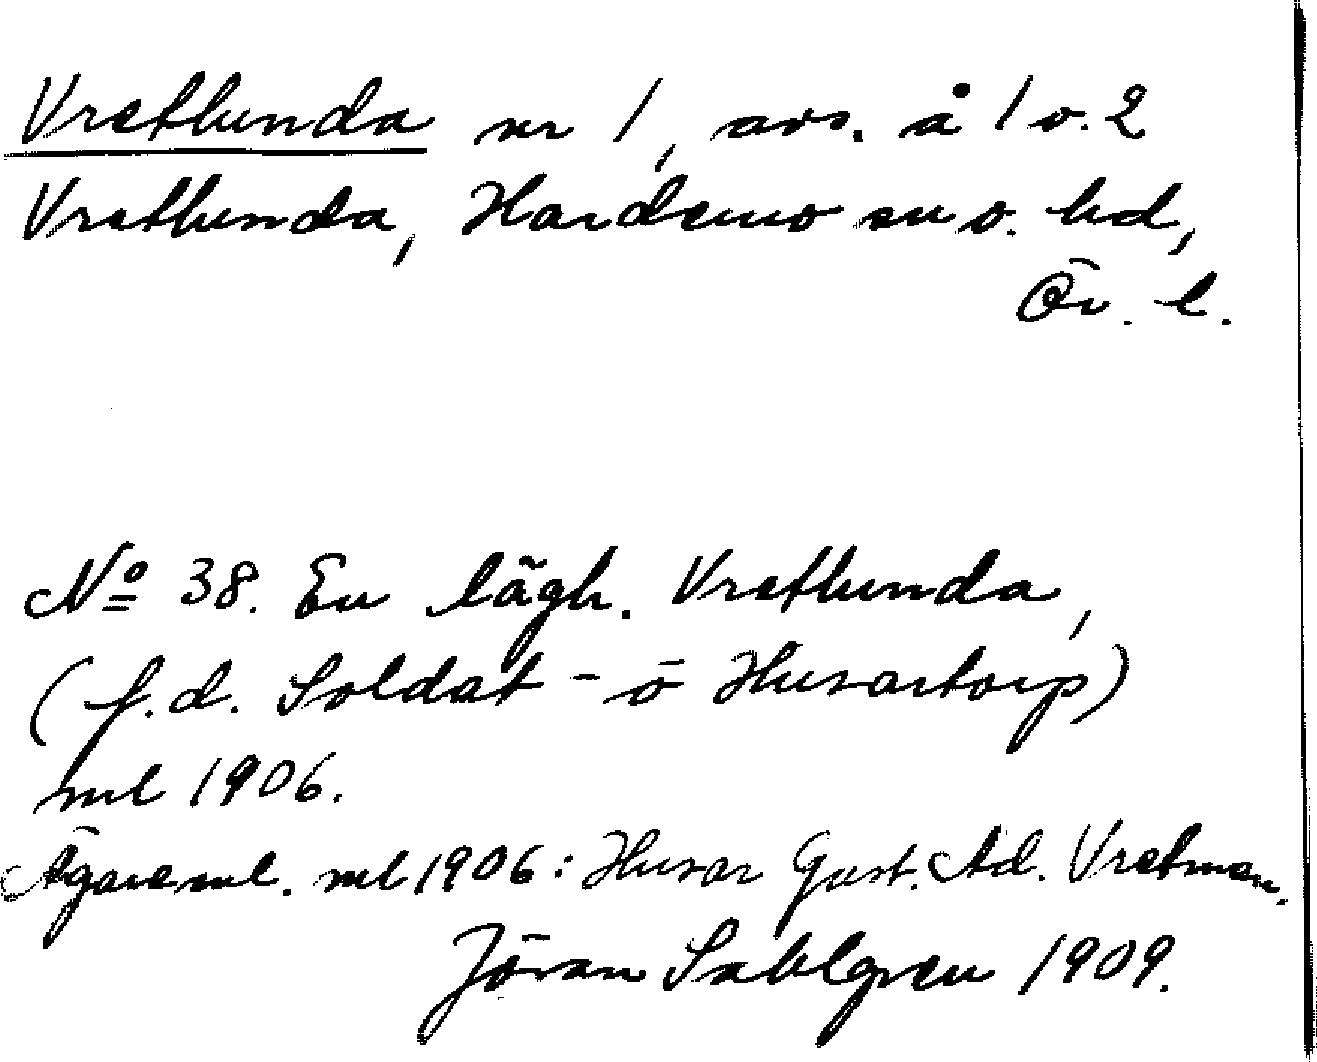 Vretlunda nr 1, avs. å 1 o. 2
Vretlunda, Hardemo sn o. hd,
Ör. l.
No 38. En lägh. Vretlunda,
(f.d. Soldat- ö Husartorp)
ml 1906.
Ägare enl. ml 1906: Husar Gust. Ad. Vretman.
Jöran Sahlgren 1909.